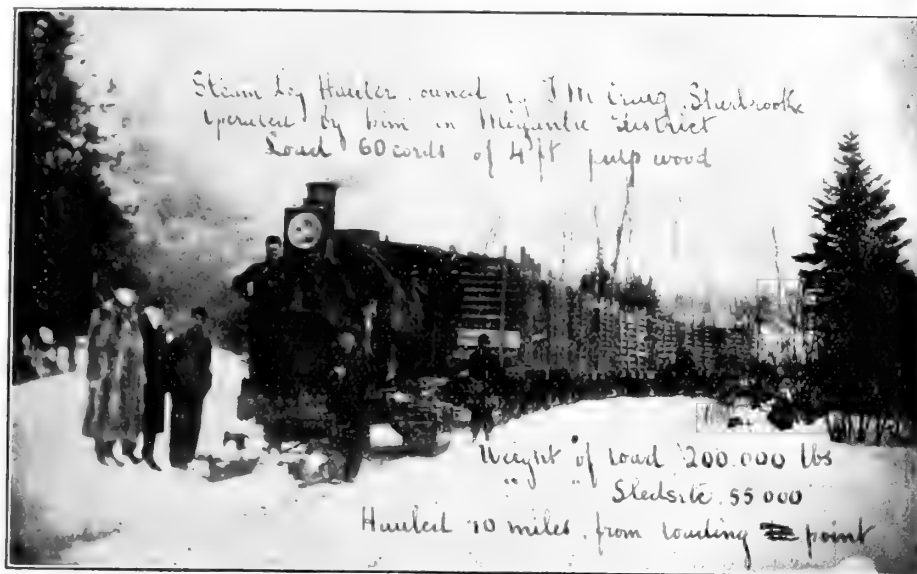 Steam Log Hauler. owned by J M Craig. Sherbrooke
Operated by him in Megantic District
Load 60 cords of 4 ft pulp wood
Weight of Load 200.000 lbs
" " Sleds etc. 55 000
Hauled 10 miles. from loading point